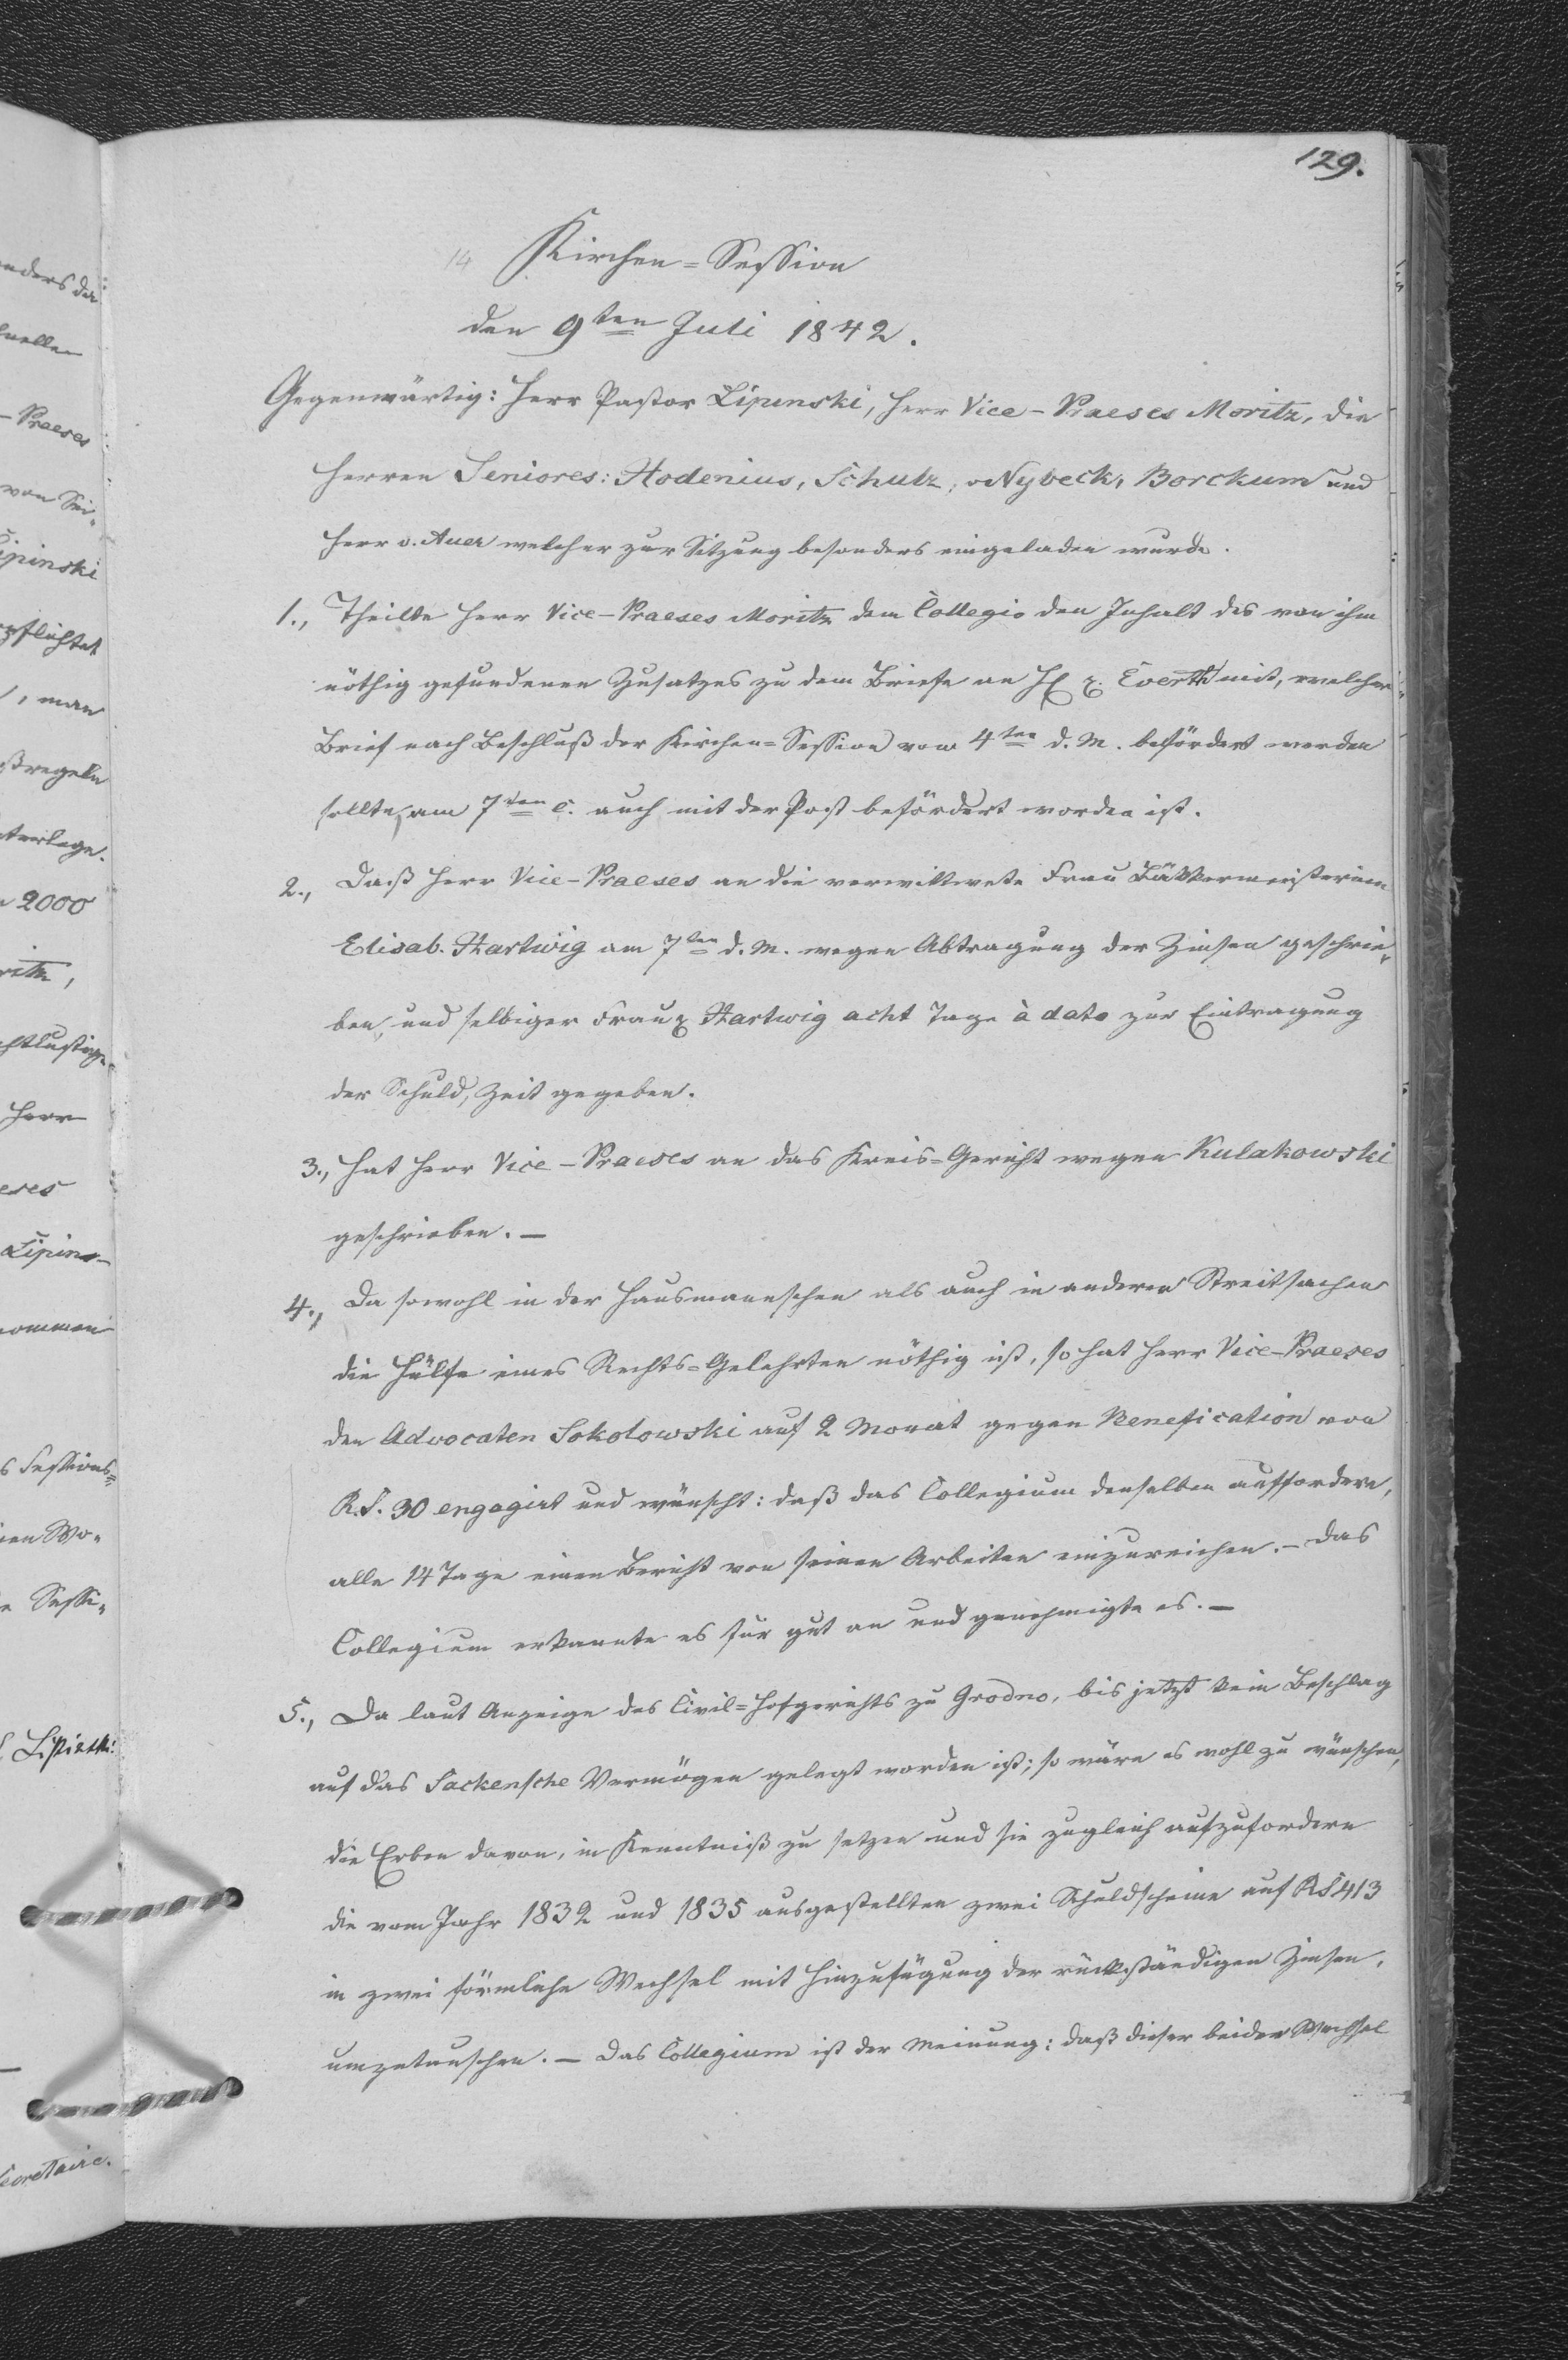 129.
14 Kirchen=Session
den 9ten Juli 1842.
Gegenwärtig: Herr Pastor Lipinski, Herr Vice-Praeses Moritz, die
Herren Seniores: Hodenius, Schulz, v Nybeck, Borckum und
Herr v. Auer welcher zur Sitzung besonders eingeladen wurde.
1., Theilte Herr Vice-Praeses Moritz dem Collegio den Inhalt des von ihm
nöthig gefundenen Zusatzes zu dem Briefe an H v. Everth mit, welcher
Brief nach Beschluß der Kirchen=Session vom 4ten d. M. befördert werden
sollte, am 7ten c. auch mit der Post befördert worden ist.
2., Daß Herr Vice-Praeses an die verwittwete Frau Bäkkermeisterinn
Elisab. Hartwig am 7ten d. M. wegen Abtragung der Zinsen geschrie-
ben, und selbiger Frau Hartwig acht Tage à dato zur Eintragung
der Schuld, Zeit gegeben.
3., Hat Herr Vice-Praeses an das Kreis=Gericht wegen Kulakowski
geschrieben. —
4., Da sowohl in der Hausmannschen als auch in anderen Streitsachen
die Hülfe eines Rechts=Gelehrten nöthig ist, so hat Herr Vice-Praeses
den Advocaten Sokolowski auf 2 Monat gegen Benefication von
R.S. 30 engagirt und wünscht: daß das Collegium denselben auffordere,
alle 14 Tage einen Bericht von seinen Arbeiten einzureichen. – Das
Collegium erkannte es für gut an und genehmigte es. —
5., Da laut Anzeige des Civil=Hofgerichts zu Grodno, bis jetzt kein Beschlag
auf das Sackensche Vermögen gelegt worden ist; so wäre es wohl zu wünschen,
die Erben davon, in Kenntniß zu setzen und sie zugleich aufzufordern
die vom Jahr 1832 und 1835 ausgestellten zwei Schuldscheine auf RS 413
in zwei förmliche Wechsel mit Hinzufügung der rückständigen Zinsen,
umzutauschen. — Das Collegium ist der Meinung: daß dieser beider Wechsel